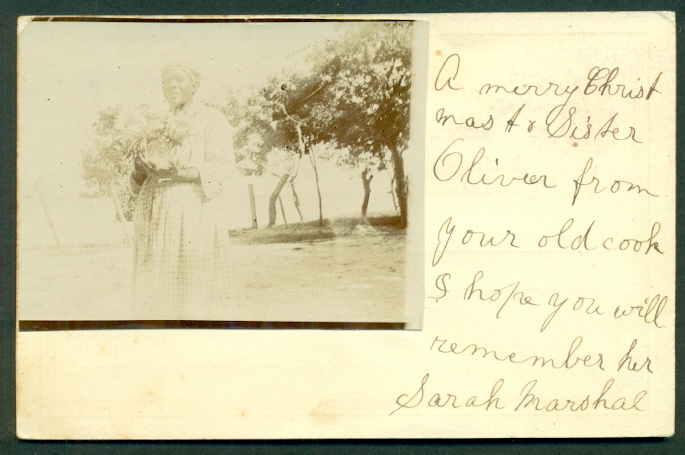 A merry Christ
mas to Sister
Olivier from
your old cook
I hope you will
remember her
Sarah Marshal